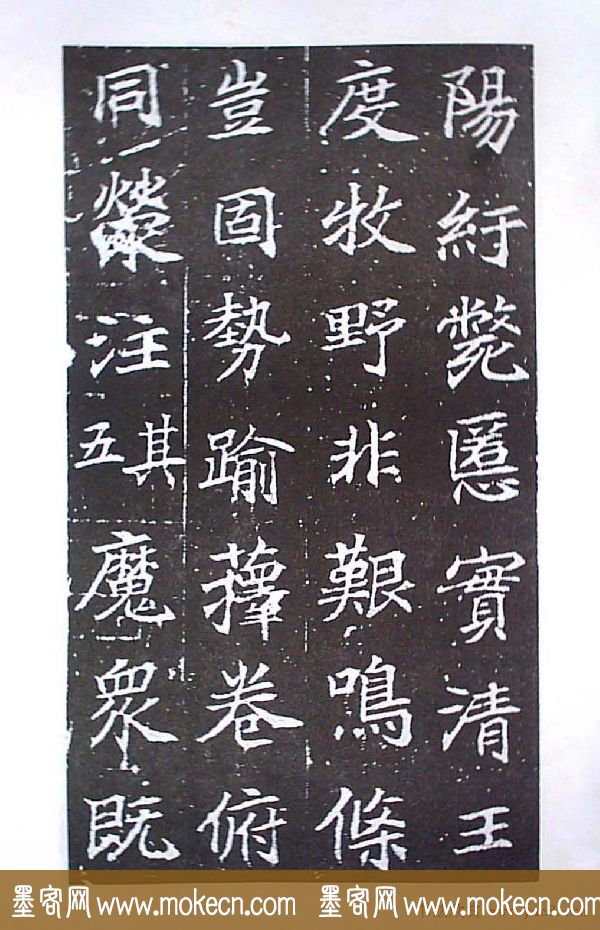 陽紆斃慝實清王
度牧野非艱鳴條
豈固勢踰蘀卷俯
同注其五魔眾既
墨客网 www.mokecn.com 墨客网 www.mokecn.com